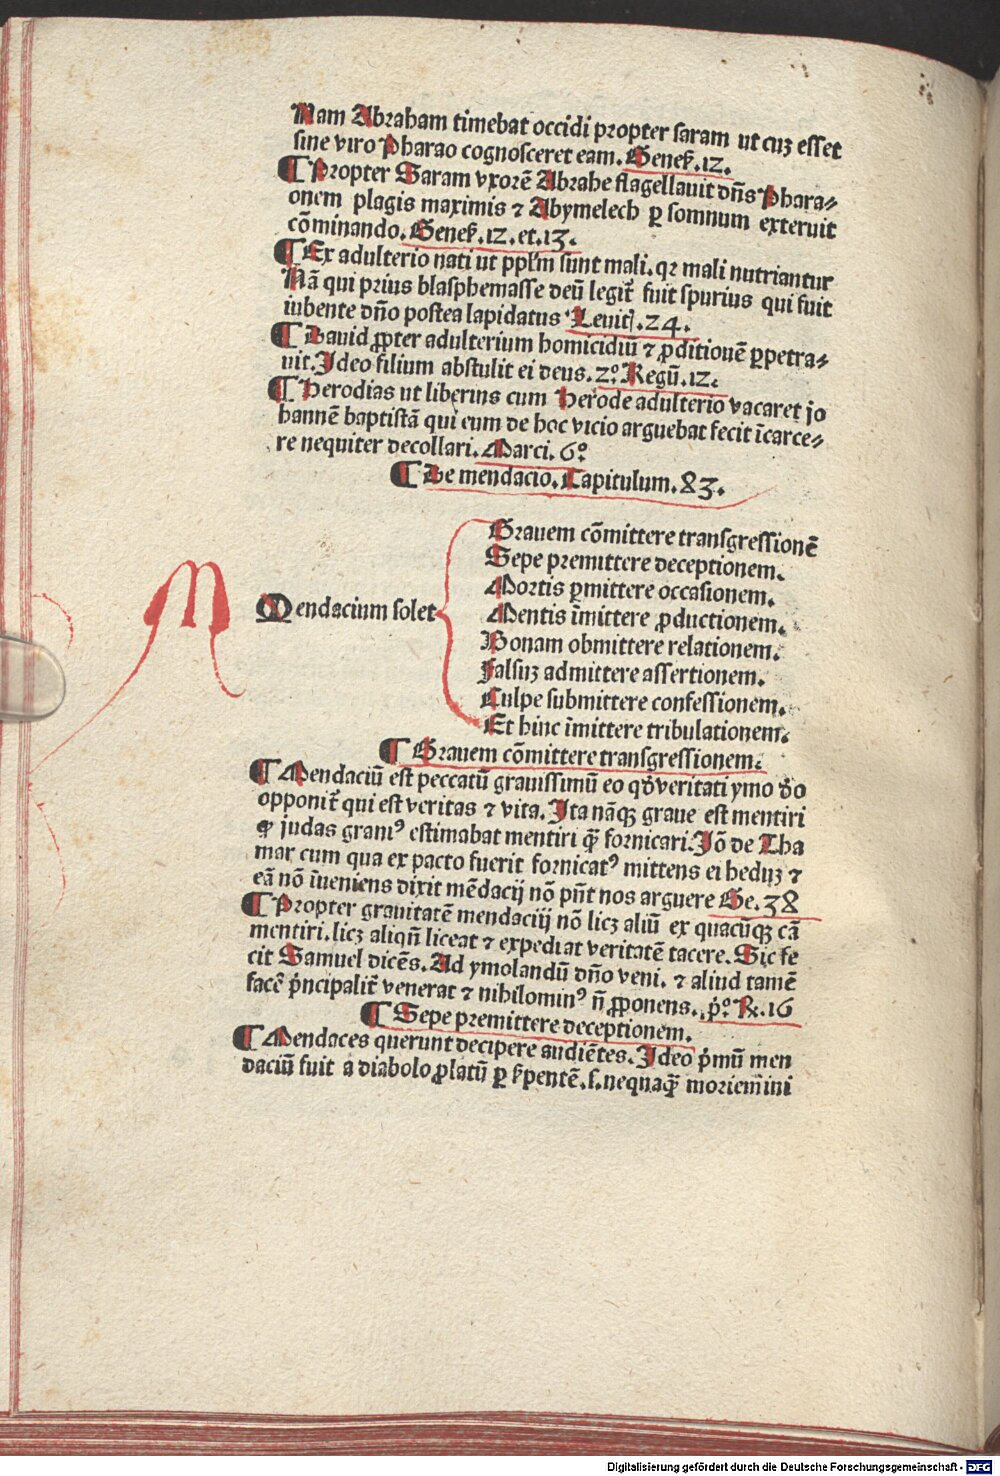 Nam Abraham timebat occidi propter saram ut cuꝫ esset
sine viro Pharao cognosceret eam. Geneſ. 12.
¶ Propter Saram vxorē Abrahe flagellauit dn̄s Phara⸗
onem plagis maximis ⁊ Abymelech ꝑ somnum exteruit
cōminando. Geneſ. 12. et. 13.
¶ Ex adulterio nati ut ppl'm sunt mali. qꝛ mali nutriantur
Nā qui prius blasphemasse deū legit̄ fuit spurius qui fuit
iubente dn̄o postea lapidatus Leuit. 24.
¶ Dauid ꝓpter adulterium homicidiū ⁊ ꝓditionē ꝑpetra⸗
uit. Ideo filium abstulit ei deus. 2° Regū. 12.
¶ Herodias ut liberius cum Herode adulterio vacaret jo
hannē baptistā qui eum de hoc vicio arguebat fecit īcarce⸗
re nequiter decollari. Marci. 6°
¶ De mendacio. Capitulum. 83.
Mendacium solet
Grauem cōmittere transgressionē
Sepe premittere deceptionem.
Mortis ꝑmittere occasionem.
Mentis īmittere ꝓductionem.
Bonam obmittere relationem.
Falsuꝫ admittere assertionem.
Culpe submittere confessionem.
Et hinc īmittere tribulationem.
¶ Grauem cōmittere transgressionem.
¶ Mendaciū est peccatū grauissimū eo qđ veritati ymo đo
opponit̄ qui est veritas ⁊ vita. Ita nāqꝫ graue est mentiri
ꝙ judas graniꝰ estimabat mentiri q̄ꝫ fornicari. Iō de Tha
mar cum qua ex pacto fuerit fornicatꝰ mittens ei heduꝫ ⁊
eā nō īueniens dixit mēdacij nō pn̄t nos arguere Ge. 38
¶ Propter grauitatē mendacij nō licꝫ aliū ex quacūqꝫ cā
mentiri. licꝫ aliqn̄ liceat ⁊ expediat veritatē tacere. Sic fe
cit Samuel dicēs. Ad ymolandū dn̄o veni. ⁊ aliud tamē
facē p̄ncipalit̄ venerat ⁊ nihilominꝰ n̄ ꝓponens. p̄° R. 16
¶ Sepe premittere deceptionem.
¶ Mendaces querunt decipere audiētes. Ideo p̄mū men
daciū fuit a diabolo ꝓlatū ꝑ ſ̄pentē. s. nequaq̄ꝫ moriemini
Digitalisierung gefördert durch die Deutsche Forschungsgemeinschaft - DFG